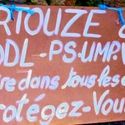 RTIOUZE &
DDL-PS-UMPV
re dans tous les
rotégez-Vou